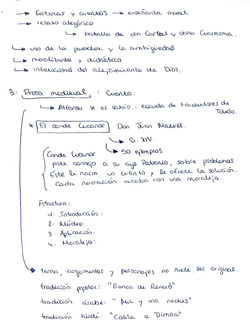 → Fábulas y cuentos → enseñanza moral
→ relato alegórico
↳ batalla de don Carnal y doña Cuaresma.
↳ uso de la parodia y la ambigüedad
→ moralizante y didáctico
→ infelicidad del alejamiento de Dios.
3. Prosa medieval: Cuento.
↳ Alfonso X el sabio: escuela de traductores de
Toledo.
* El conde Lucanor Don Juan Manuel.
→ S. XIV
→ 50 ejemplos
Conde Lucanor
pide consejo a su ayo Patronio, sobre problemas
Este le narra un cuento y le ofrece la solución.
Cada narración acaba con una moraleja.
Estructura:
1. Introducción:
2. Núcleo:
3. Aplicación:
4. Moraleja:
→ Tema, argumentos y personajes no suele ser original.
tradición popular: "Roman de Renard"
tradición árabe: "Mil y una noches"
tradición hindú: "Calila e Dimna"